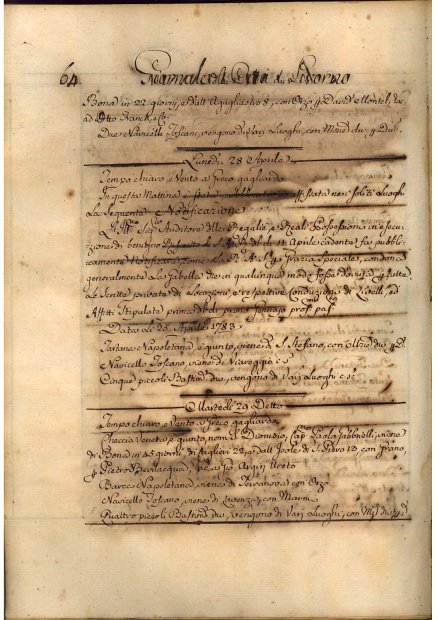 64. Giornale della Città di Livorno
Bona in 22 giorni, e dall' Agugliastro 8, con Orzo p David Montel,
ad Otto Franck, e C.
Due Navicelli Toscani, vengono di Varj Luoghi, con p Div.
Lunedì 28 Aprile
Tempo chiaro e Vento a Greco gagliardo
In questa Mattina è stata affissata nei soliti Luoghi
La seguente Notificazione
Sig. Auditore delle Regalie, e Reali Possessioni in esecu-
zione di benigno Rescritto di S. A. R. del dì Aprile cadente fa pubbli-
camente Notificare come la R. A. S. p grazia speciale, condona
generalmente la Gabella che in qualunque modo fosse dovuta p tutte
le Scritte private di Locazioni, e respettive Conduzioni di Livelli, ed
Affitti Stipulate prima del dì primo Gennajo pros. pas.
Data li 26 Aprile 1783
Tartana Napoletana e quinto, viene di S. Stefano, con
Navicello Toscano, viene di Viareggio e s.
Cinque piccoli Bastim. div. vengono di Varj Luoghi e s.
Martedì 29 Detto
Tempo chiaro e Vento a Greco gagliardo
Checcia Veneta e quinto, nom. il Dionisio, Cap. Paolo viene
di Bona in 45 giorni, di Cagliari 29, e dall' Isole di S. Piero 13 con Grano,
p Pietro Bevilacqua,
Barca Napoletana, viene di Terranova con Orzo
Navicello Toscano, viene di Lavenza, con Marmi
Quattro piccoli Bastim. div., vengono di Varj Luoghi, con